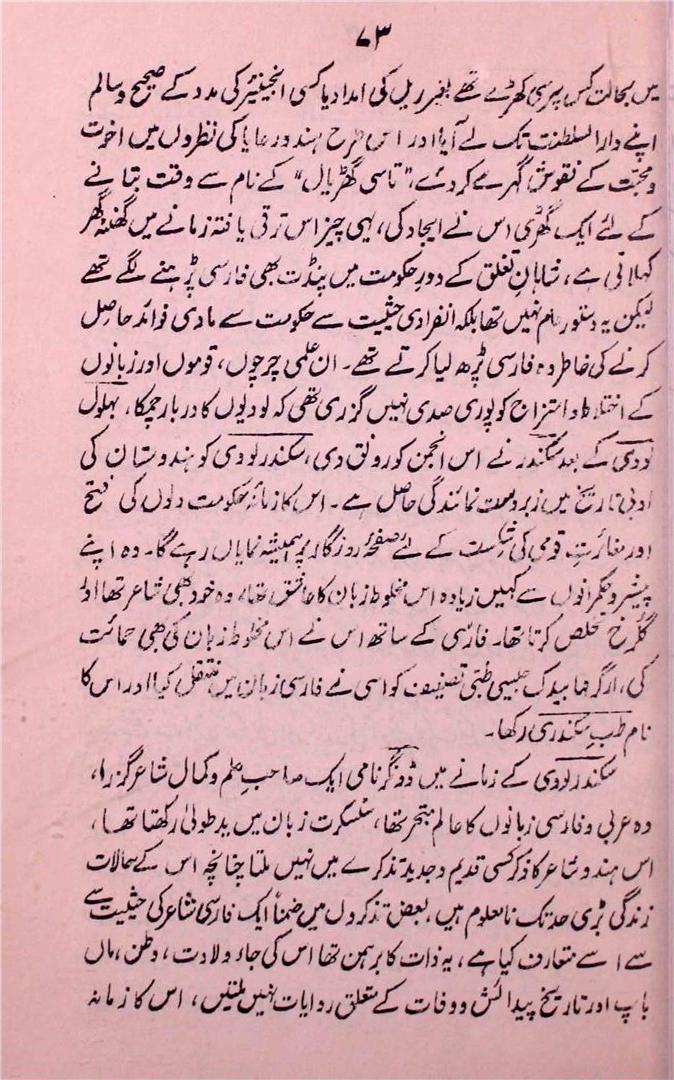 ۷۳
میں بحالت کس مپرسی کھڑے تھے بغیر ریل کی امداد یا کسی انجینیئر کی مدد کے صحیح و سالم
اپنے دارالسلطنت تک لے آیا اور اس طرح ہندو رعایا کی نظروں میں اخوت
و محبت کے نقوش گہرے کر دئے، "تاسی گھڑیال" کے نام سے وقت بتانے
کے لئے ایک گھڑی اس نے ایجاد کی، یہی چیز اس ترقی یافتہ زمانے میں گھنٹہ گھر
کہلاتی ہے، شاہانِ تغلق کے دورِ حکومت میں پنڈت بھی فارسی پڑہنے لگے تھے
لیکن یہ دستور عام نہیں تھا بلکہ انفرادی حیثیت سے حکومت سے مادی فوائد حاصل
کرنے کی خاطر وہ فارسی پڑھ لیا کرتے تھے۔ ان علمی چرچوں، قوموں اور زبانوں
کے اختلاط و امتزاج کو پوری صدی نہیں گزری تھی کہ لودیوں کا دربار چمکا، بہلول
لودی کے بعد سکندر نے اس انجمن کو رونق دی، سکندر لودی کو ہندوستان کی
ادبی تاریخ میں زبردست نمائندگی حاصل ہے۔ اس کا زمانۂ حکومت دلوں کی فتح
اور مغائرتِ قومی کی شکست کے لئے صفحۂ روزگار پر ہمیشہ نمایاں رہے گا۔ وہ اپنے
پیشرو حکمرانوں سے کہیں زیادہ اس مخلوط زبان کا عاشق تھا، وہ خود بھی شاعر تھا اور
گلرخ تخلص کرتا تھا۔ فارسی کے ساتھ اس نے اس مخلوط زبان کی بھی حمائت
کی، ارگر مہابیدک جیسی طبی تصنیف کو اسی نے فارسی زبان میں منتقل کیا اور اس کا
نام طبِ سکندری رکھا۔
سکندر لودی کے زمانے میں ڈونگر نامی ایک صاحبِ علم و کمال شاعر گزرا،
وہ عربی و فارسی زبانوں کا عالم متبحر تھا، سنسکرت زبان میں یدِ طولیٰ رکھتا تھا،
اس ہندو شاعر کا ذکر کسی قدیم و جدید تذکرے میں نہیں ملتا چنانچہ اس کے حالات
زندگی بڑی حد تک نامعلوم ہیں، بعض تذکروں میں ضمناً ایک فارسی شاعر کی حیثیت سے
سے اسے متعارف کیا ہے، یہ ذات کا برہمن تھا اس کی جاۓ ولادت، وطن، ماں
باپ اور تاریخ پیدائش و وفات کے متعلق روایات نہیں ملتیں، اس کا زمانہ